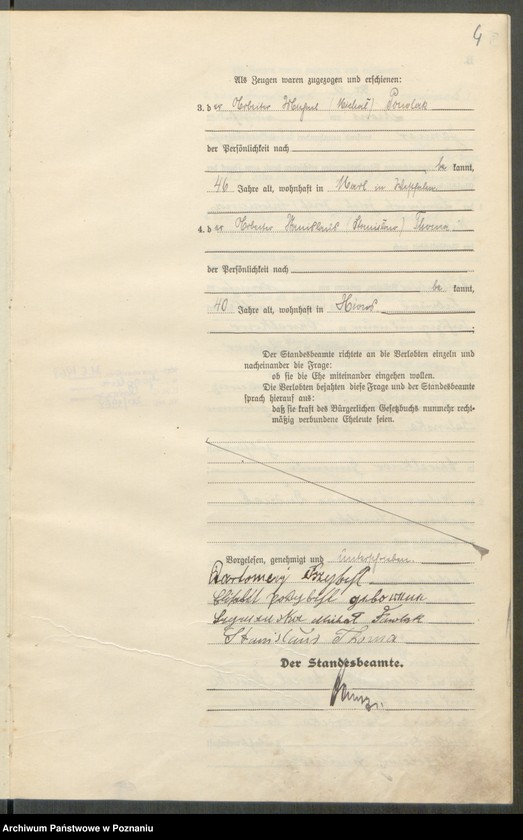 4
Als Zeugen waren zugezogen und erschienen:
3. der Arbeiter (Michał) Pawlak
der Persönlichkeit nach
be kannt,
46 Jahre alt, wohnhaft in Marl in Westfalen
4. der Arbeiter Stanislaus (Stanisław) Thoma
der Persönlichkeit nach
be kannt,
40 Jahre alt, wohnhaft in
Der Standesbeamte richtete an die Verlobten einzeln und
nacheinander die Frage:
ob sie die Ehe miteinander eingehen wollen.
Die Verlobten bejahten diese Frage und der Standesbeamte
sprach hierauf aus:
daß sie kraft des Bürgerlichen Gesetzbuchs nunmehr recht-
mäßig verbundene Eheleute seien.
Vorgelesen, genehmigt und unterschrieben.
Przybył
geborene
Michał Pawlak
Stanislaus Thoma
Der Standesbeamte.
Archiwum Państwowe w Poznaniu